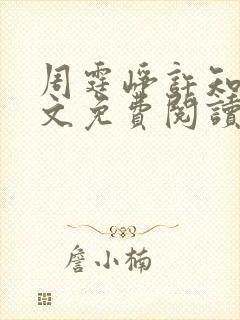 周霆崢許知
文免費閱讀
詹小楠